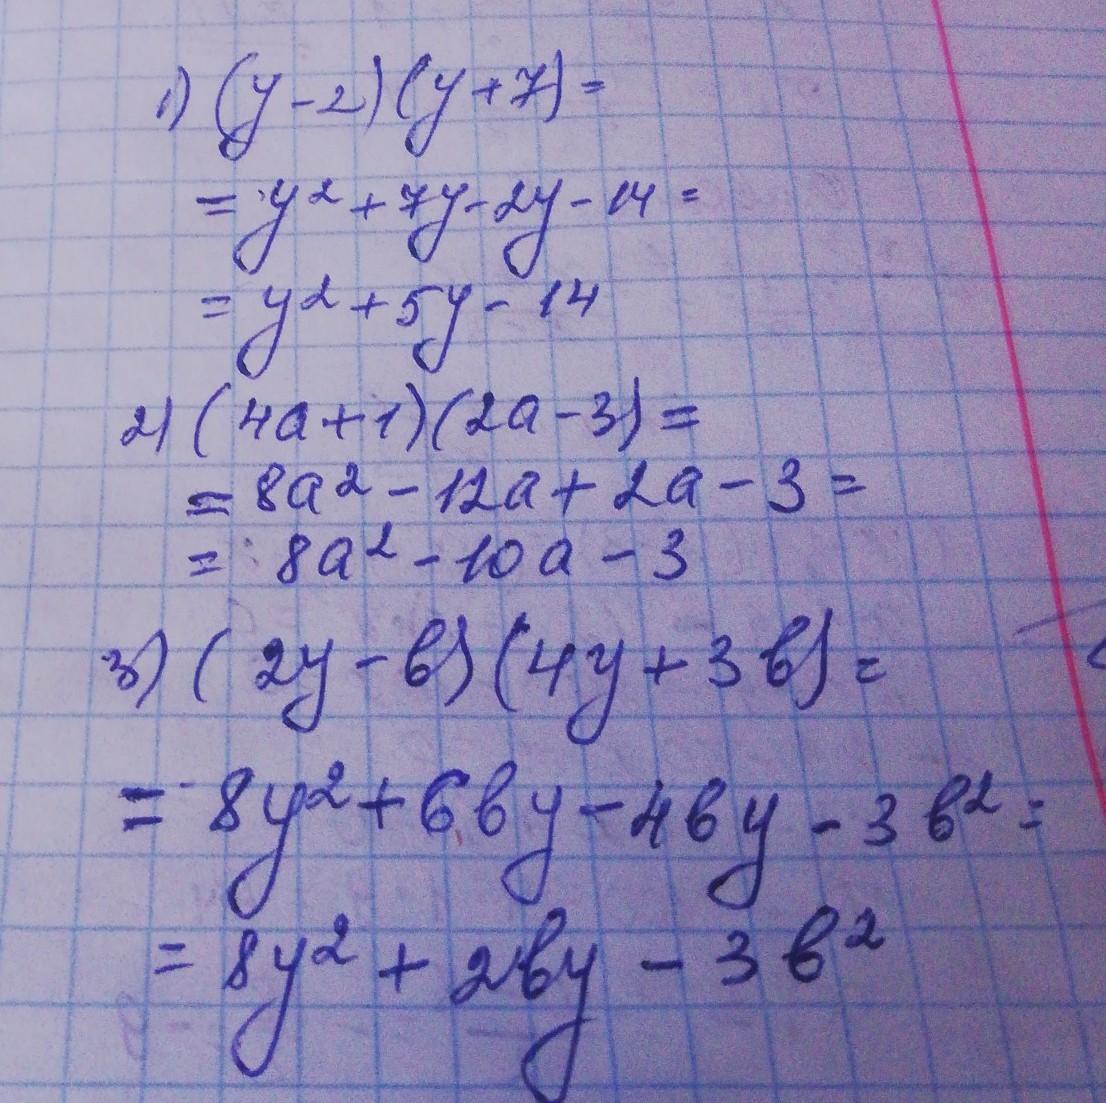 1) (y-2)(y+7)=
= y²+7y-2y-14=
= y²+5y-14
2) (4a+1)(2a-3)=
= 8a²-12a+2a-3=
= 8a²-10a-3
3) (2y-b)(4y+3b)=
= 8y²+6by-4by-3b²=
= 8y²+2by-3b²